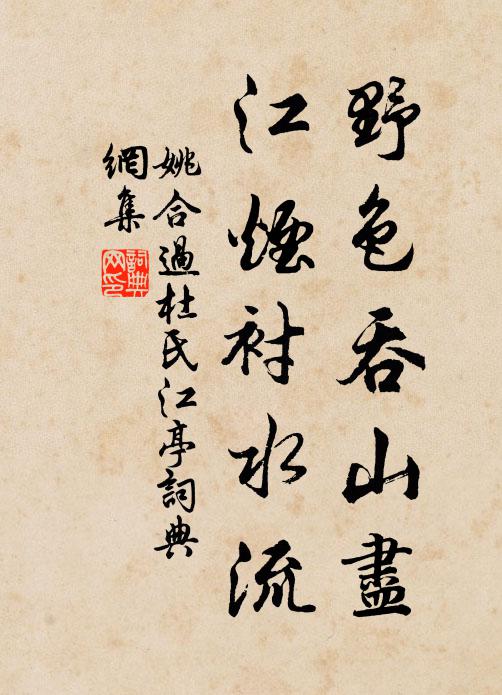 野色吞山盡
江煙衬水流
姚合過杜氏江亭詞典
網集
詞典
网印